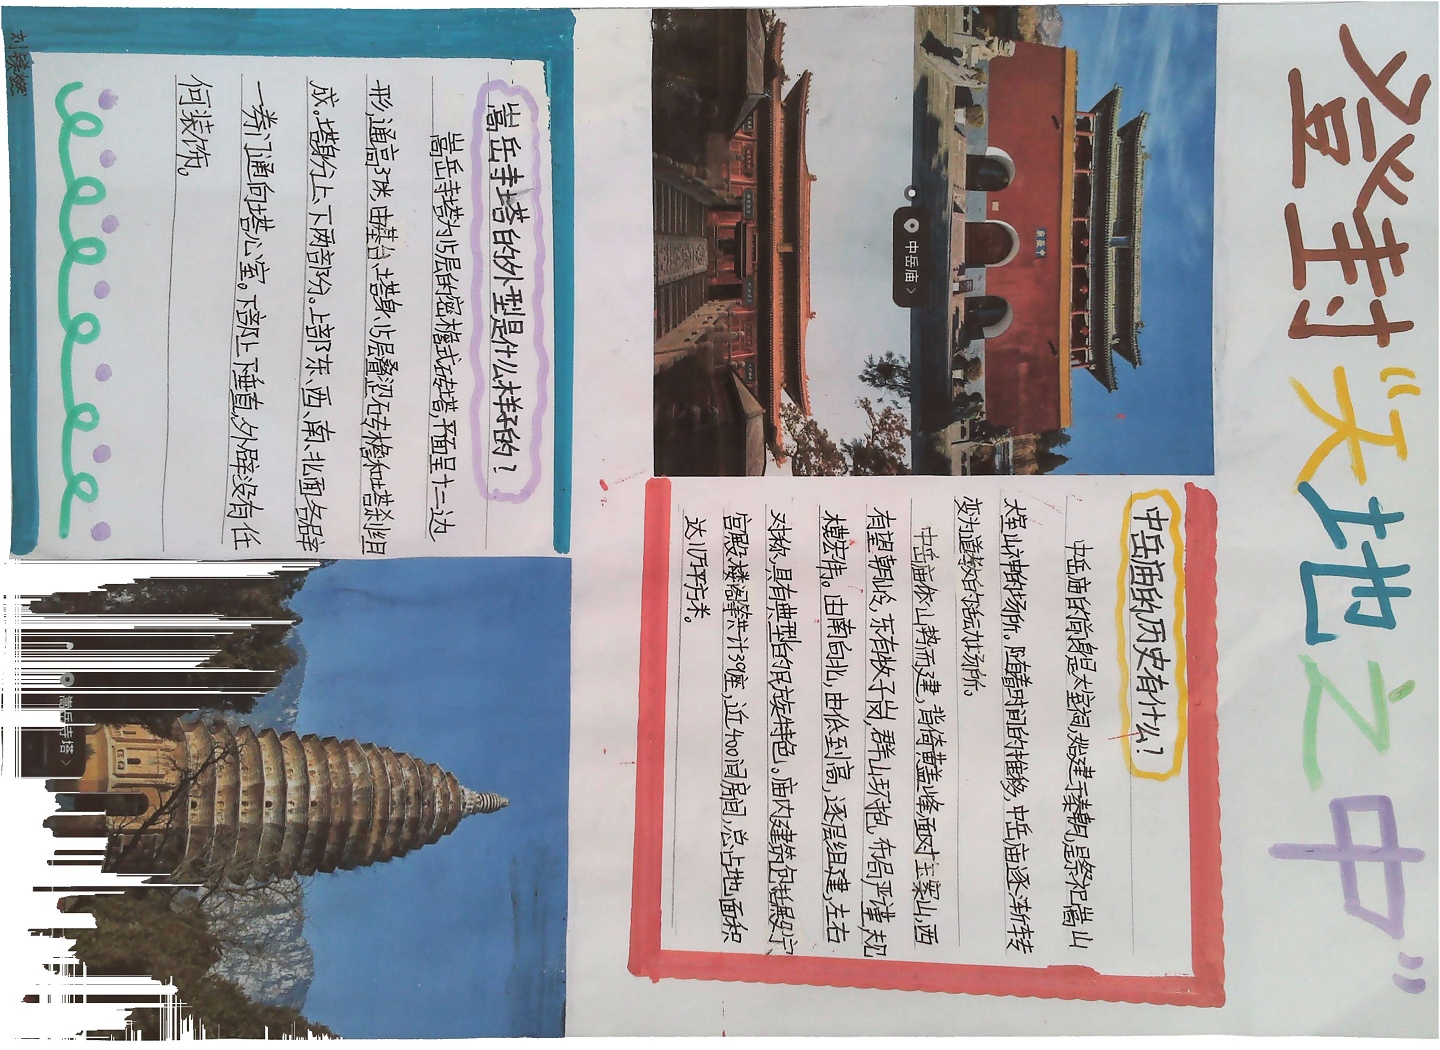 登封“天地之中”
中岳庙
中岳庙
中岳庙的历史有什么?
中岳庙的前身是太室祠,始建于秦朝,是祭祀嵩山
太室山神的场所。随着时间的推移,中岳庙逐渐转
变为道教的活动场所。
中岳庙依山势而建,背倚黄盖峰,面对玉案山,西
有望朝岭,东有牧子岗,群山环抱,布局严谨,规
模宏伟。由南向北,由低到高,逐层组建,左右
对称,具有典型的民族特色。庙内建筑包括殿宁
宫殿、楼阁等共计39座,近400间房间,总占地面积
达11万平方米。
嵩岳寺塔的外型是什么样子的?
嵩岳寺塔为15层的密檐式砖塔,平面呈十二边
形,通高37米,由基台、塔身、15层叠涩砖檐和塔刹组
成。塔身分上、下两部分。上部东、西、南、北面各辟
一券门通向塔心室。下部上下垂直,外壁没有任
何装饰。
嵩岳寺塔